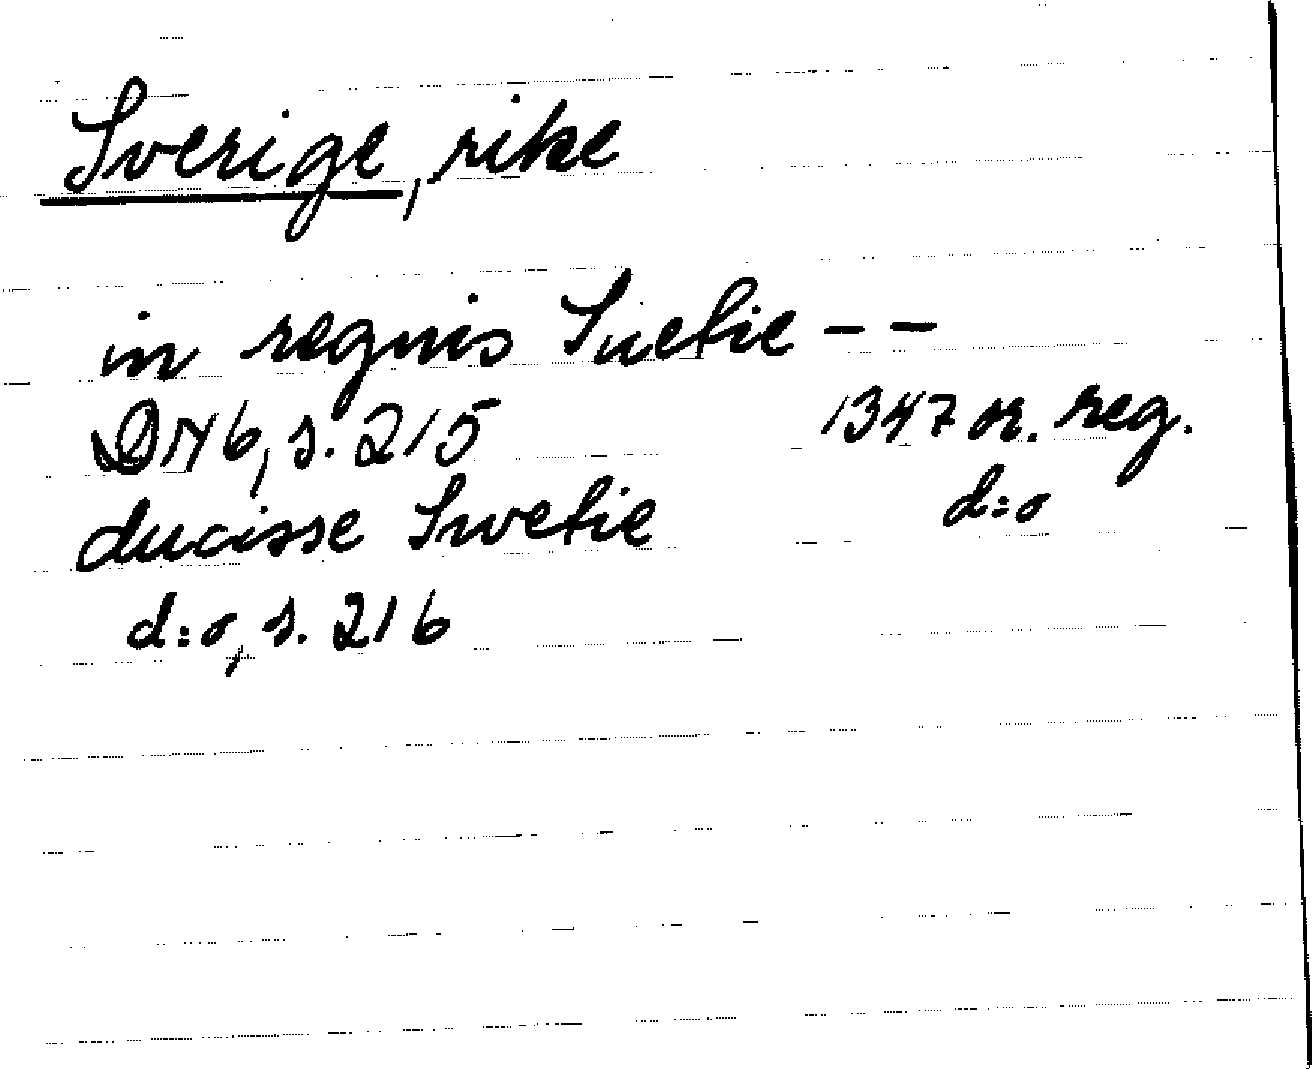 Sverige, rike
in regnis Suetie - -
DN 6, s. 215 1347 or. reg.
ducisse Swetie d:o
d:o, s. 216